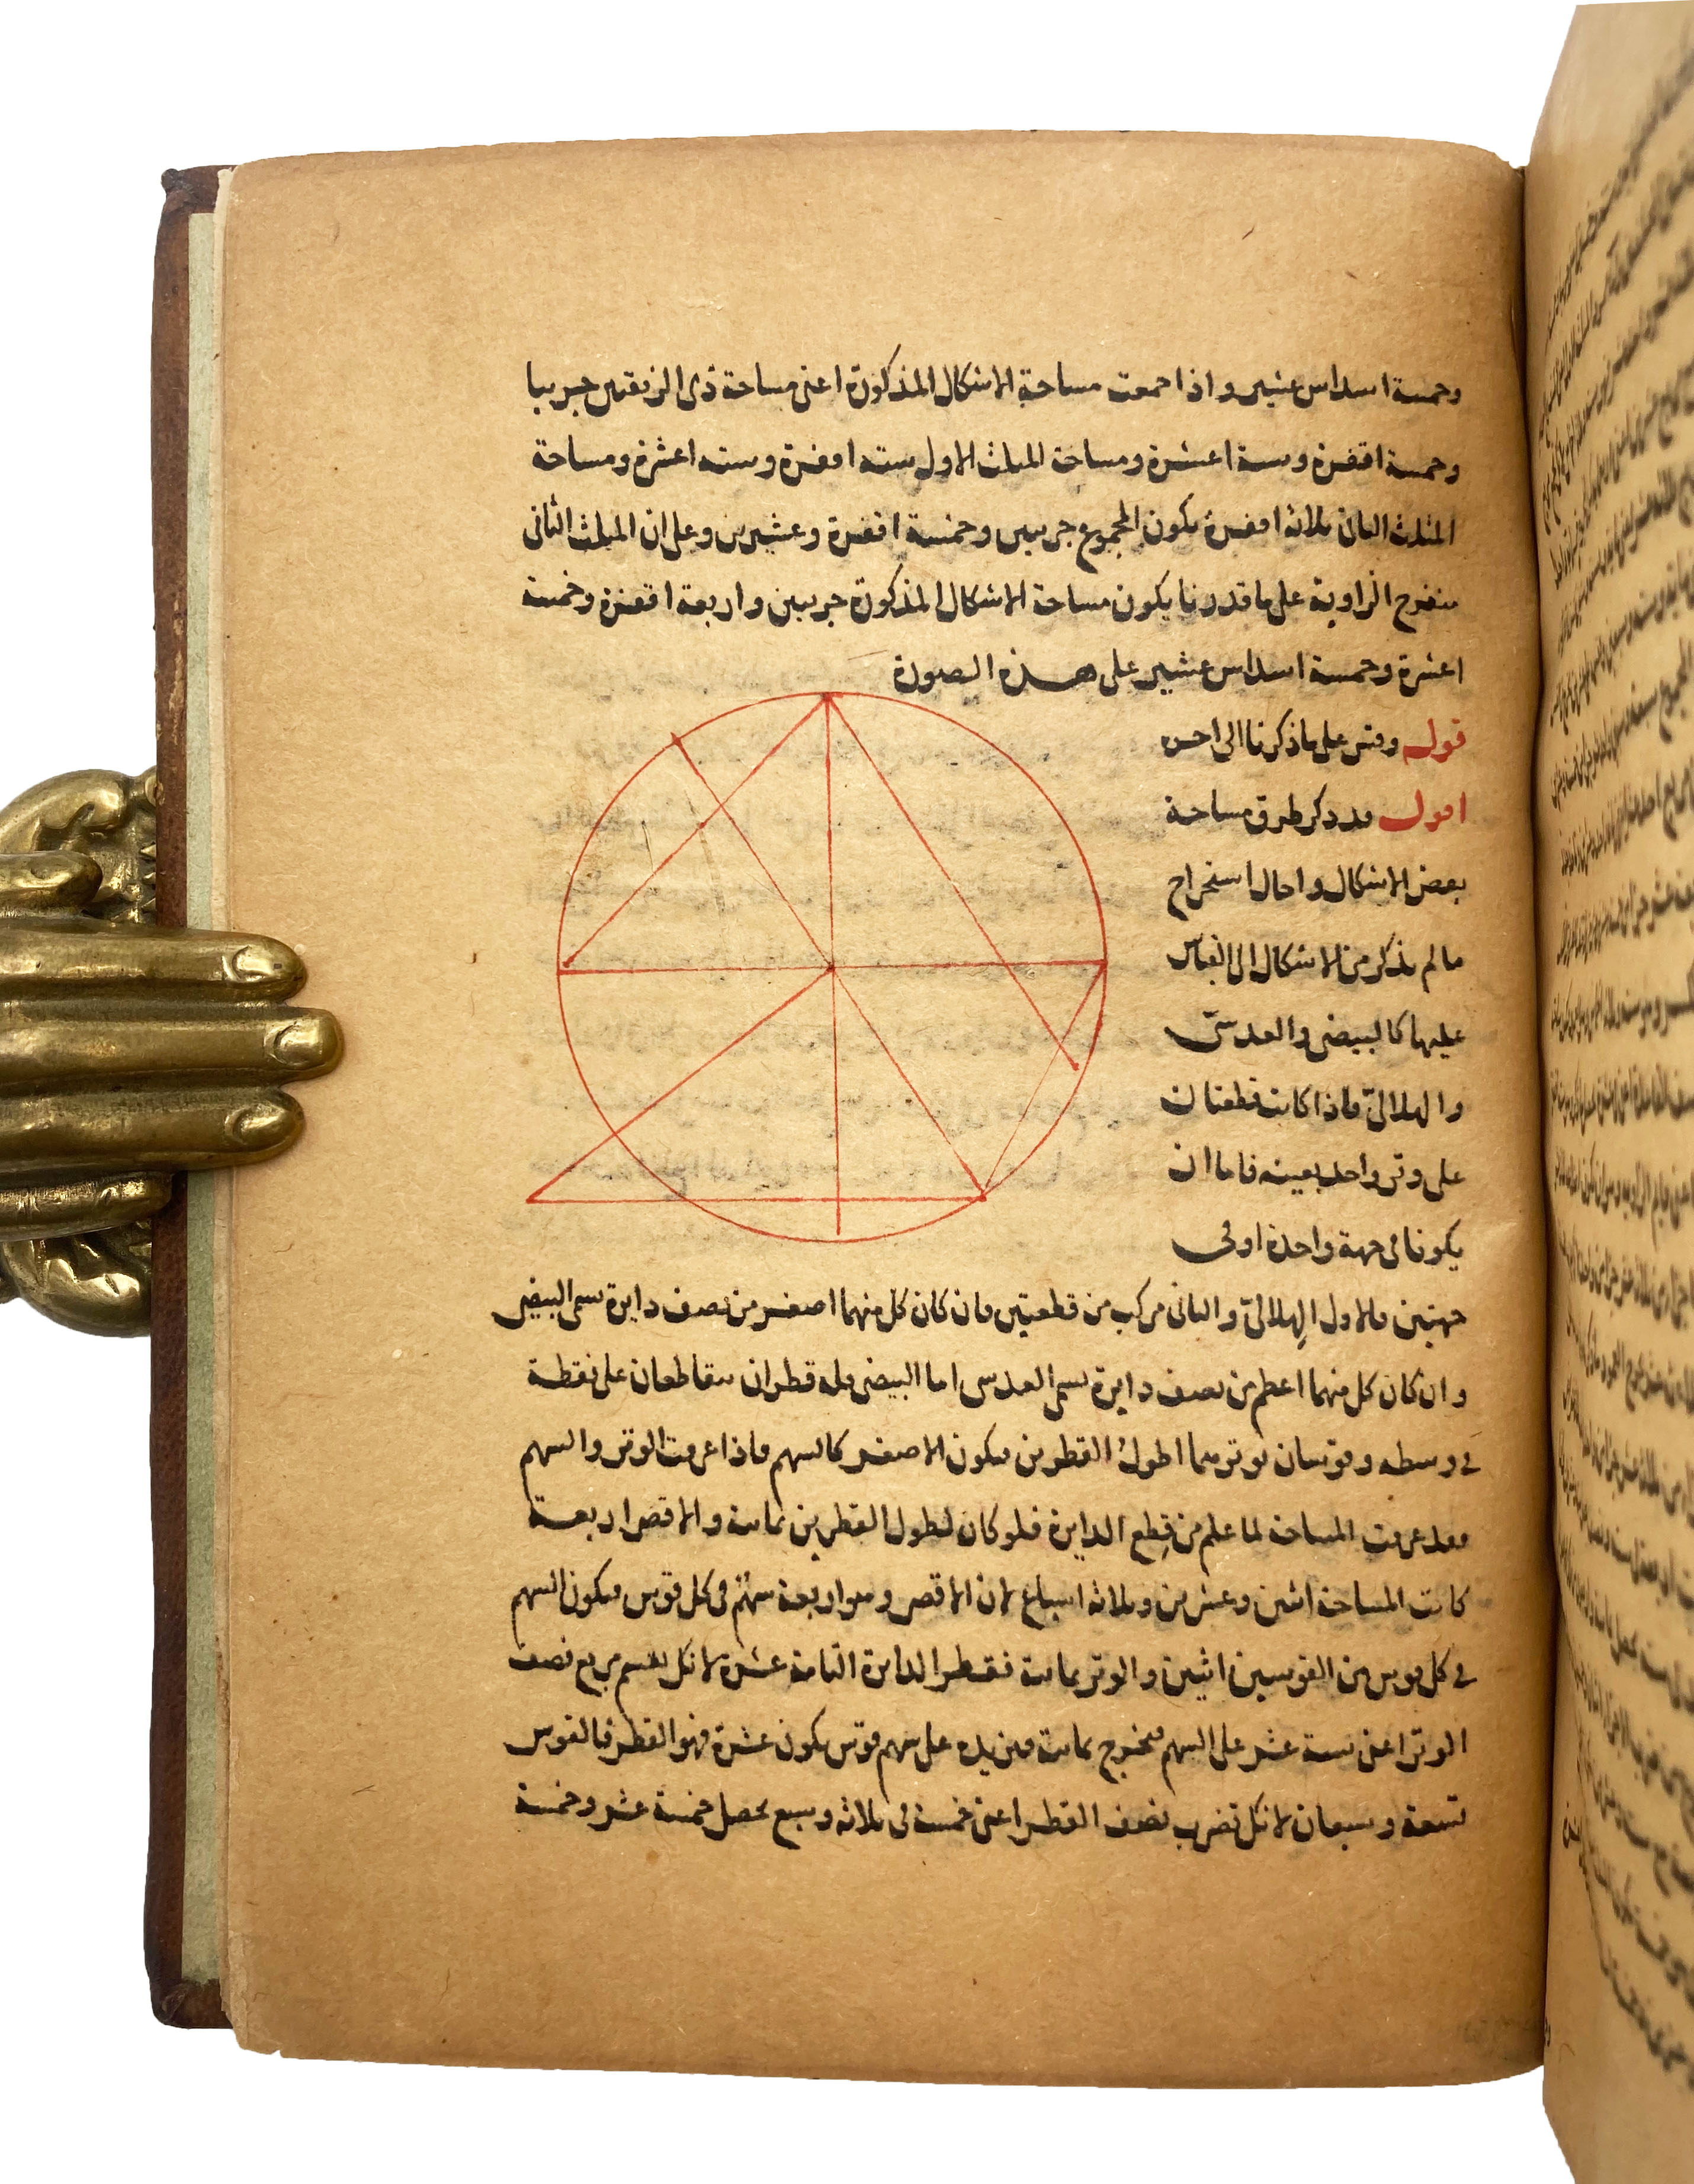 وخمسة اسداس عشير واذا جمعت مساحة الاشكال المذكورة اعنى مساحة ذى الزنقتين جريبا
وخمسة اقفزة وستة اعشرة ومساحة المثلث الاول ستة اقفزة وستة اعشرة ومساحة
المثلث الثانى ثلاثة اقفزة يكون المجموع جريبين وخمسة اقفزة وعشيرين وعلى ان المثلث الثانى
منفرج الزاوية على ما قدرنا يكون مساحة الاشكال المذكورة جريبين واربعة اقفزة وخمسة
اعشرة وخمسة اسداس عشير على هذه الصورة
قوله وقس على ما ذكرنا الى اخره
اقول قد ذكر طرق مساحة
بعض الاشكال واحال استخراج
ما لم يذكر من الاشكال الى القياس
عليها كالبيضى والعدسىّ
والهلالىّ فاذا كانت قطعتان
على وتر واحد بعينه فاما ان
يكونا فى جهة واحدة او فى
جهتين فالاول الهلالىّ والثانى مركب من قطعتين فان كان كل منهما اصغر من نصف دايرة سمى البيضى
وان كان كل منهما اعظم من نصف دايرة سمى العدسى اما البيضى فله قطران يتقاطعان على نقطة
فى وسطه وقوسان يوترهما اطول القطرين فيكون الاصغر كالسهم فاذا عرفت الوتر والسهم
فقد عرفت المساحة لما علم من قطع الدايرة فلو كان اطول القطرين ثمانية والاقصر اربعة
كانت المساحة اثنين وعشرين وثلاثة اسباع لان الاقصر وهو اربعة سهم فى كل قوس فيكون السهم
فى كل قوس من القوسين اثنين والوتر ثمانية فقطر الدايرة التامة عشرة لانك تقسم مربع نصف
الوتر اعنى ستة عشر على السهم فيخرج ثمانية فنزيده على سهم قوس يكون عشرة فهو القطر فالقوس
تسعة وسبعان لانك تضرب نصف القطر اعنى خمسة فى ثلاثة وسبع يحصل خمسة عشر وخمسة